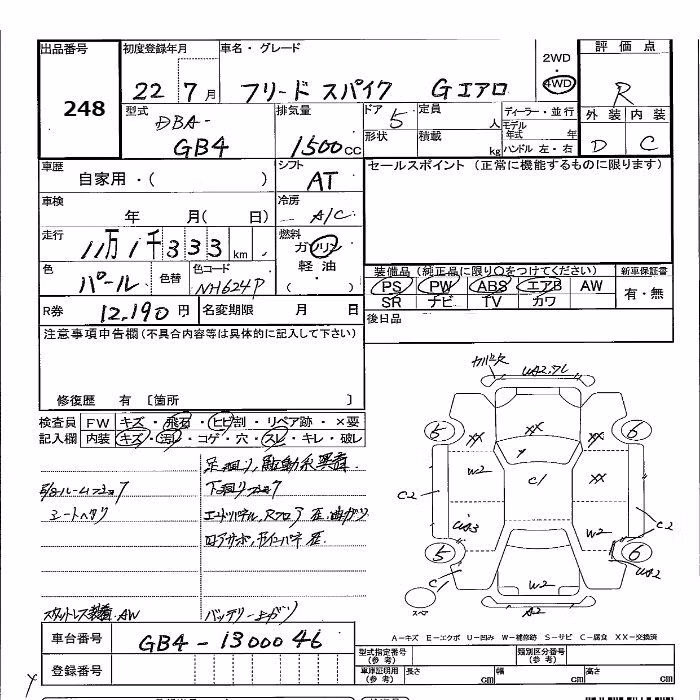 出品番号 248
初度登録年月 22 7月
車名・グレード フリード スパイク Gエアロ
2WD・4WD
評価点 R
外装 D 内装 C
型式 DBA- GB4
排気量 1500cc
ドア 5 形状
定員 人 積載 kg
ディーラー・並行
モデル年式 年
ハンドル 左・右
車歴 自家用・( )
シフト AT
セールスポイント(正常に機能するものに限ります)
車検 年 月( 日)
冷房 A/C
走行 11万1千333km
燃料 ガソリン 軽油( )
色 パール 色替 色コード NH624P
装備品(純正品に限り○をつけてください) 新車保証書
PS PW ABS エアB AW 有・無
SR ナビ TV カワ
R券 12,190円 名変期限 月 日
後日品
注意事項申告欄(不具合内容等は具体的に記入して下さい)
修復歴 有 〔箇所 〕
検査員記入欄 FW キズ・飛石・ヒビ割・リペア跡・×要
内装 キズ・汚れ・コゲ・穴・スレ・キレ・破レ
シートヘタリ
スタットレス装着 AW
バッテリー上がり
U2
XX
5 6
XX XX
W2 C1 XX
C2 C2
UA3 W2
5 6
C W2 UA2
A2
A-キズ E-エクボ U-凹み W-補修跡 S-サビ C-腐食 XX-交換済
車台番号 GB4-1300046
登録番号
型式指定番号(参考) 類別区分番号(参考)
車庫証明用(参考) 長さ cm 幅 cm 高さ cm